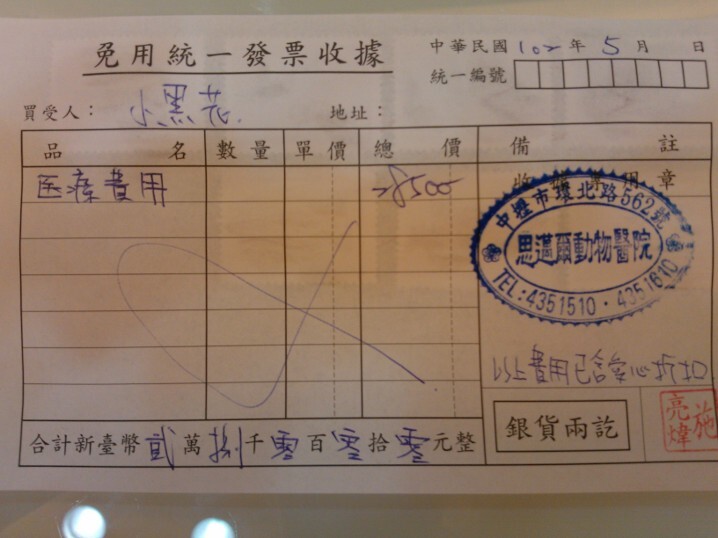 免用統一發票收據
中華民國102年5月 日
統一編號
買受人：小黑花.
地址：
品名 數量 單價 總價 備註
医療費用 28500
收據專用章
中壢市環北路562號
思邁爾動物醫院
TEL:4351510·4351610
以上費用已含愛心折扣
合計新臺幣貳萬捌千零百零拾零元整
銀貨兩訖
施亮煒